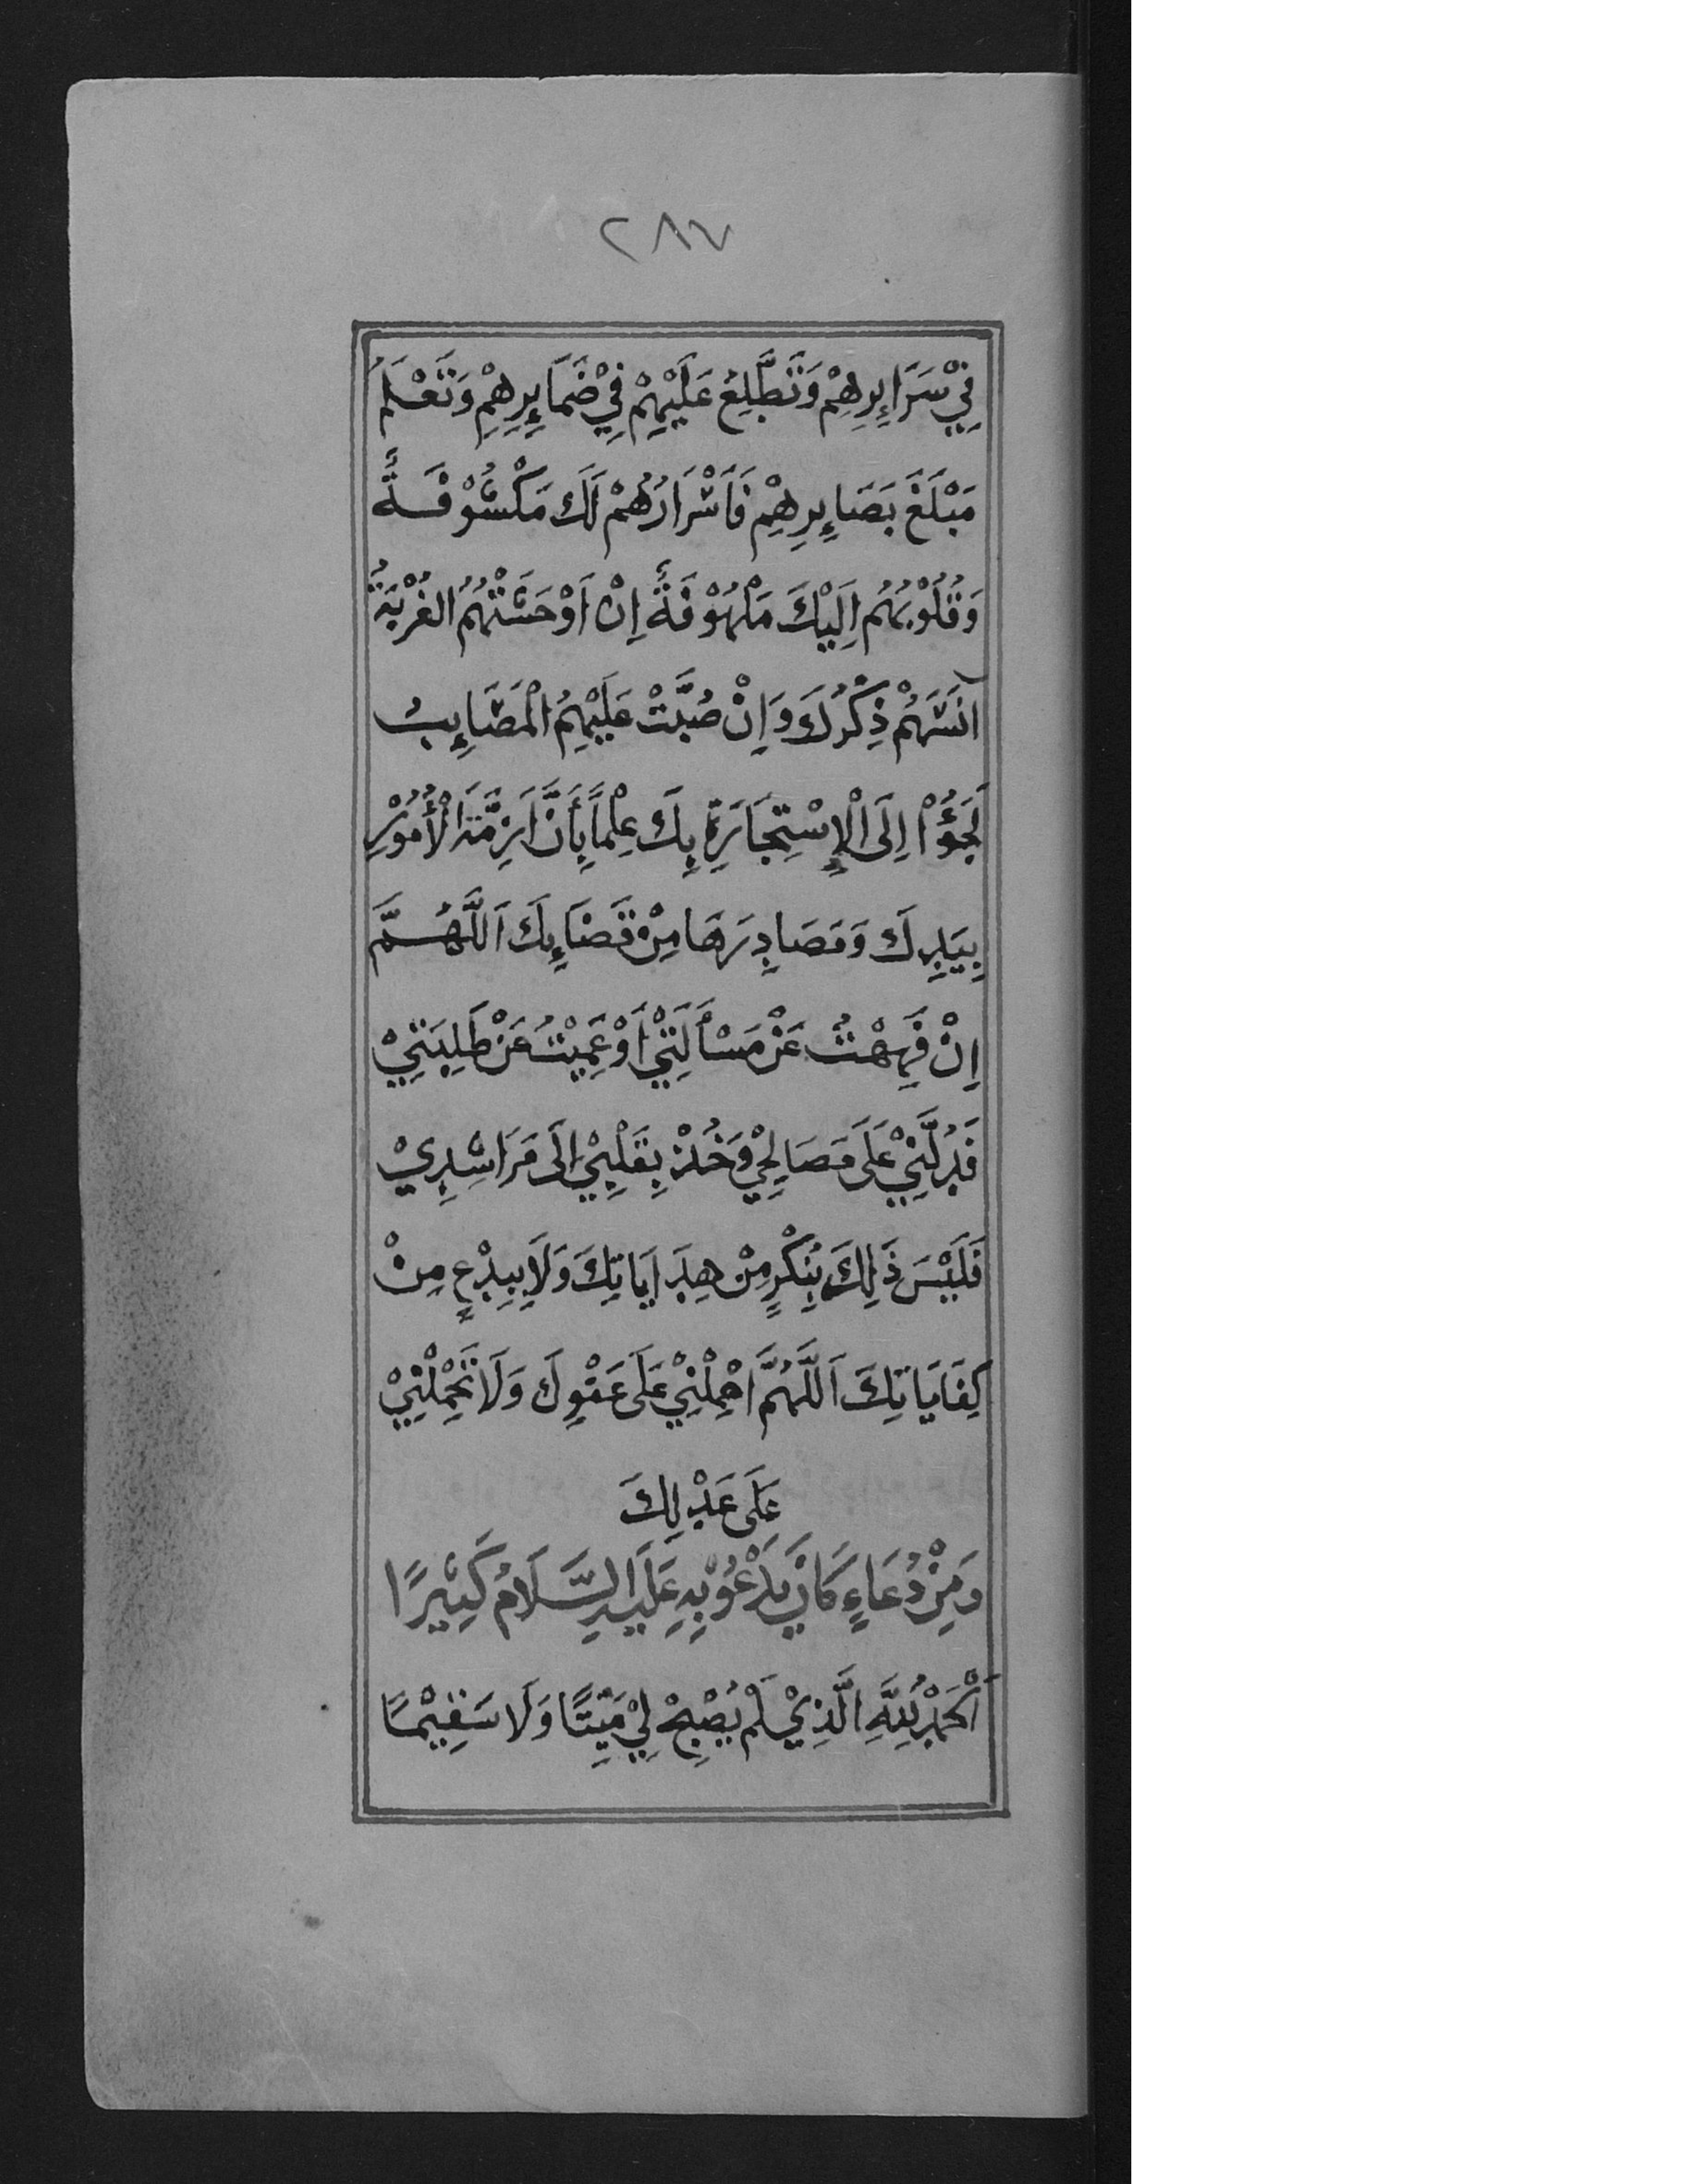 ٢٨٧
فِيْ سَرَايِرِهِمْ وَتَطَّلِعُ عَلَيْهِمْ فِيْ ضَمَايِرِهِمْ وَتَعْلَمُ
مَبْلَغَ بَصَايِرِهِمْ فَاَسْرَارُهُمْ لَكَ مَكْشُوْفَةٌ
وَقُلُوْبُهُم اِلَيْكَ مَلْهُوْفَةٌ اِنْ اَوْحَشَتْهُمُ الْغُرْبَةُ
اٰنَسَهُمْ ذِكْرُكَ وَاِنْ صُبَّتْ عَلَيْهِمُ الْمَصَايِبُ
لَجَؤُوْا اِلَى الْاِسْتِجَارَةِ بِكَ عِلْمًا بِأَنَّ اَزِمَّةَ الْأُمُوْرِ
بِيَدِكَ وَمَصَادِرَهَا مِنْ قَضَايِكَ اَللّٰهُمَّ
اِنْ فَهِهْتُ عَنْ مَسْأَلَتِيْ اَوْ عَمِيْتُ عَنْ طَلِبَتِيْ
فَدُلَّنِيْ عَلَى مَصَالِحِيْ وَخُذْ بِقَلْبِيْ اِلَى مَرَاشِدِيْ
فَلَيْسَ ذٰلِكَ بِنُكْرٍ مِنْ هِدَايَاتِكَ وَلَا بِبِدْعٍ مِنْ
كِفَايَاتِكَ اَللّٰهُمَّ احْمِلْنِيْ عَلَى عَفْوِكَ وَلَا تَحْمِلْنِيْ
عَلَى عَدْلِكَ
وَمِنْ دُعَاءٍ كَانَ يَدْعُوْ بِهِ عَلَيْهِ السَّلَامُ كَثِيْرًا
اَلْحَمْدُ لِلّٰهِ الَّذِيْ لَمْ يُصْبِحْ لِيْ مَيِّتًا وَلَا سَقِيْمًا